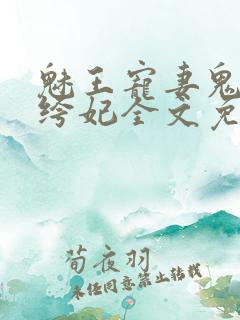 魅王寵妻鬼
绔妃全文免
荀夜羽
未经同意禁止转载